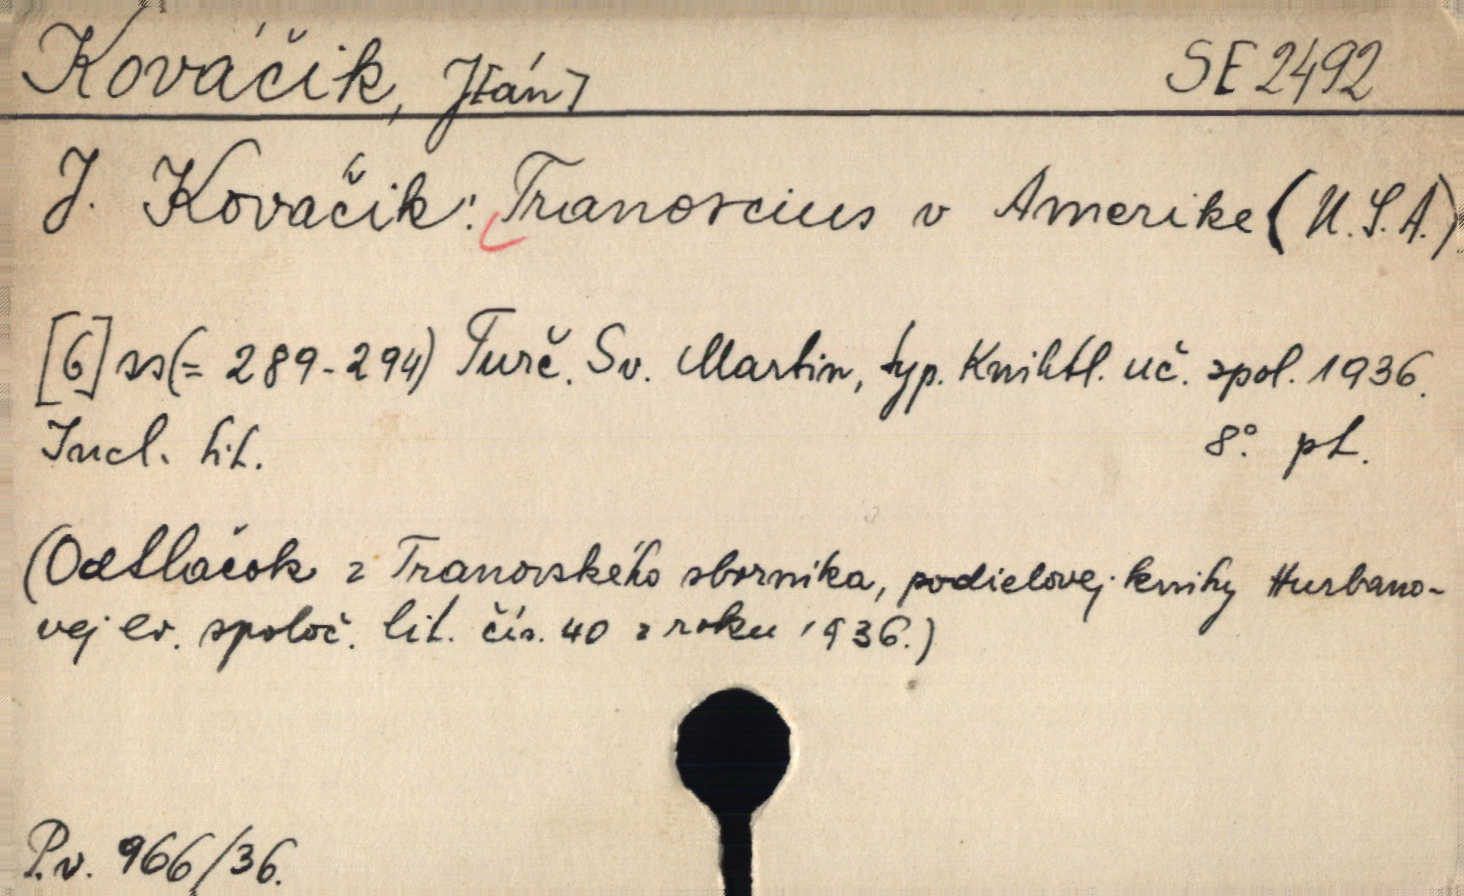 Kováčik, J[án] SE 2492
J. Kovačik: Tranoscius v Amerike (U.S.A.)
[6] ss (= 289-294) Turč. Sv. Martin, typ. Knihtl. uč. spol. 1936.
Incl. lit. 8° pt.
(Odtlačok z Tranovského sborníka, podielovej knihy Hurbano-
vej ev. spoloč. lit. čís. 40 z roku 1936.)
P.v. 966/36.